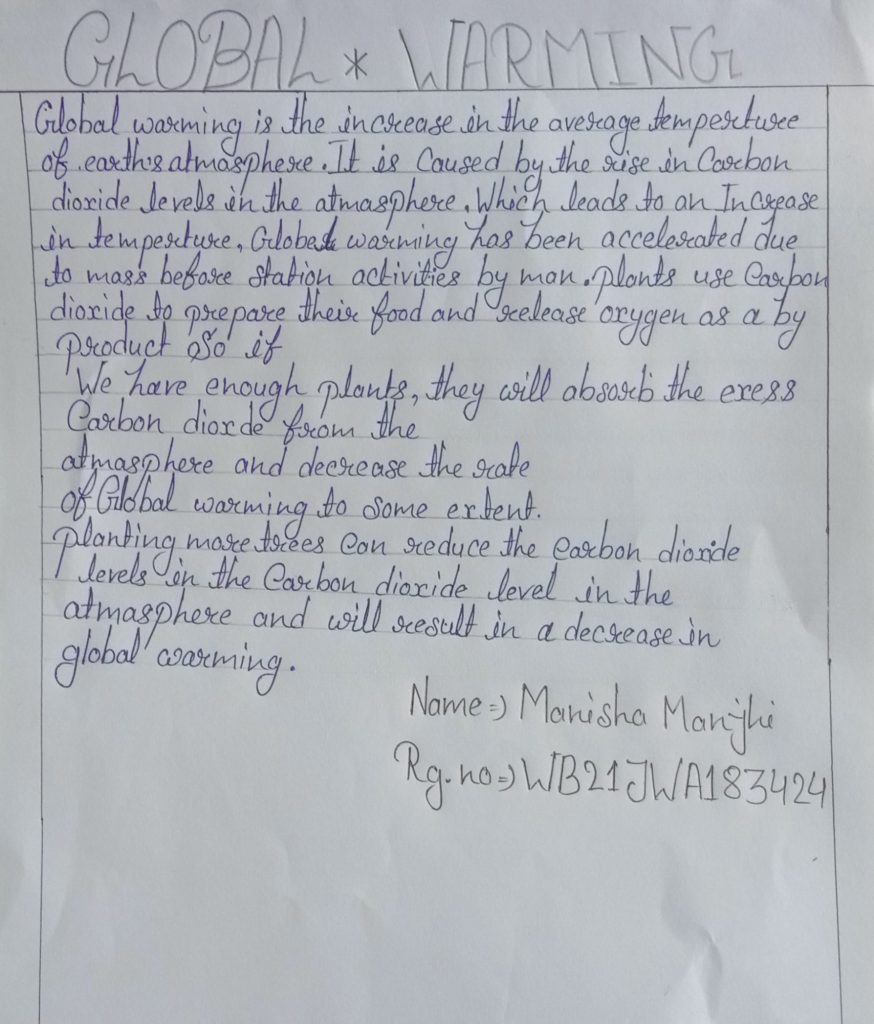 GLOBAL * WARMING
Global warming is the increase in the average temperture
of earth's atmasphere. It is Caused by the rise in Carbon
dioxide levels in the atmasphere. Which leads to an Increase
in temperture, Global warming has been accelerated due
to mass before station activities by man. plants use Carbon
dioxide to prepare their food and release oxygen as a by
product oso if
We have enough plants, they will absorb the exess
Carbon dioxde from the
atmasphere and decrease the rate
of Global warming to some extent.
planting more trees Can reduce the Carbon dioxide
levels in the Carbon dioxide level in the
atmasphere and will result in a decrease in
global warming.
Name => Manisha Manjhi
Rg.no => WB21JWA183424